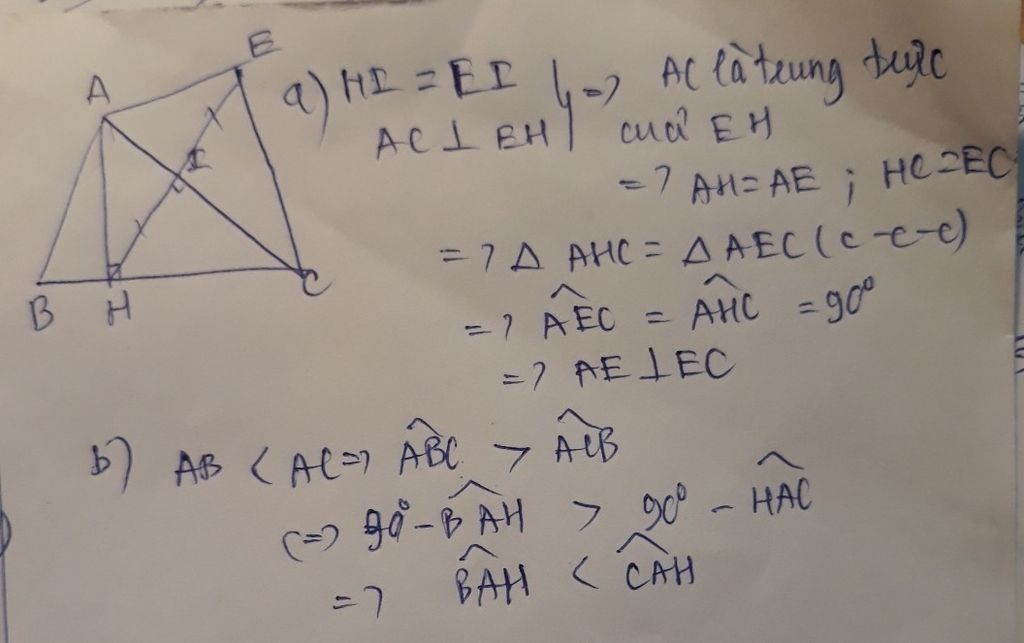 E
A
I
B H C
a) HI = EI
AC ⊥ EH } => AC là trung trực
của EH
=> AH = AE ; HC = EC
=> Δ AHC = Δ AEC (c-c-c)
=> \widehat{AEC} = \widehat{AHC} = 90°
=> AE ⊥ EC
b) AB < AC => \widehat{ABC} > \widehat{ACB}
(=> 90° - \widehat{BAH} > 90° - \widehat{HAC}
=> \widehat{BAH} < \widehat{CAH}